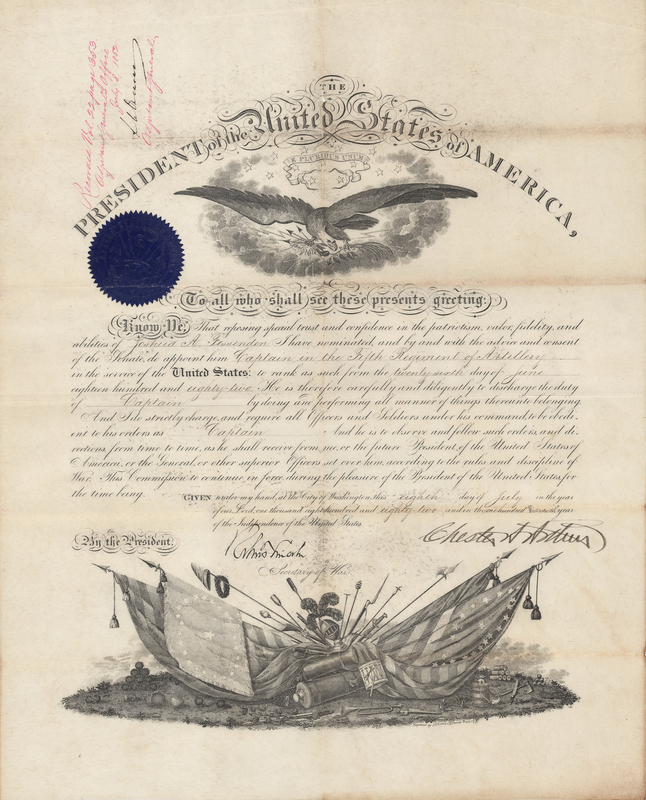 THE
PRESIDENT of the United States of AMERICA,
Adjutant General's Office
July 8 1882
Adjutant General,
E PLURIBUS UNUM
To all who shall see these presents greeting:
Know Ye, That reposing special trust and confidence in the patriotism, valor, fidelity, and
abilities of Joshua A. Fessenden I have nominated, and by and with the advice and consent
of the Senate, do appoint him Captain in the Fifth Regiment of Artillery
in the service of the United States: to rank as such from the twenty sixth day of June
eighteen hundred and eighty-two. He is therefore carefully and diligently to discharge the duty
of Captain by doing and performing all manner of things thereunto belonging.
And I do strictly charge, and require all Officers and Soldiers under his command, to be obedi-
ent to his orders as Captain And he is to observe and follow such orders, and di-
rections, from time to time, as he shall receive from me, or the future President, of the United States of
America, or the General, or other superior Officers set over him, according to the rules and discipline of
War. This Commission to continue in force during the pleasure of the President of the United States, for
the time being.
GIVEN under my hand, at the City of Washington, this eighth day of July in the year
of our Lord, one thousand eight hundred and eighty two and in the one hundred and
of the Independence of the United States.
By the President:
Chester A Arthur
Secretary of War.